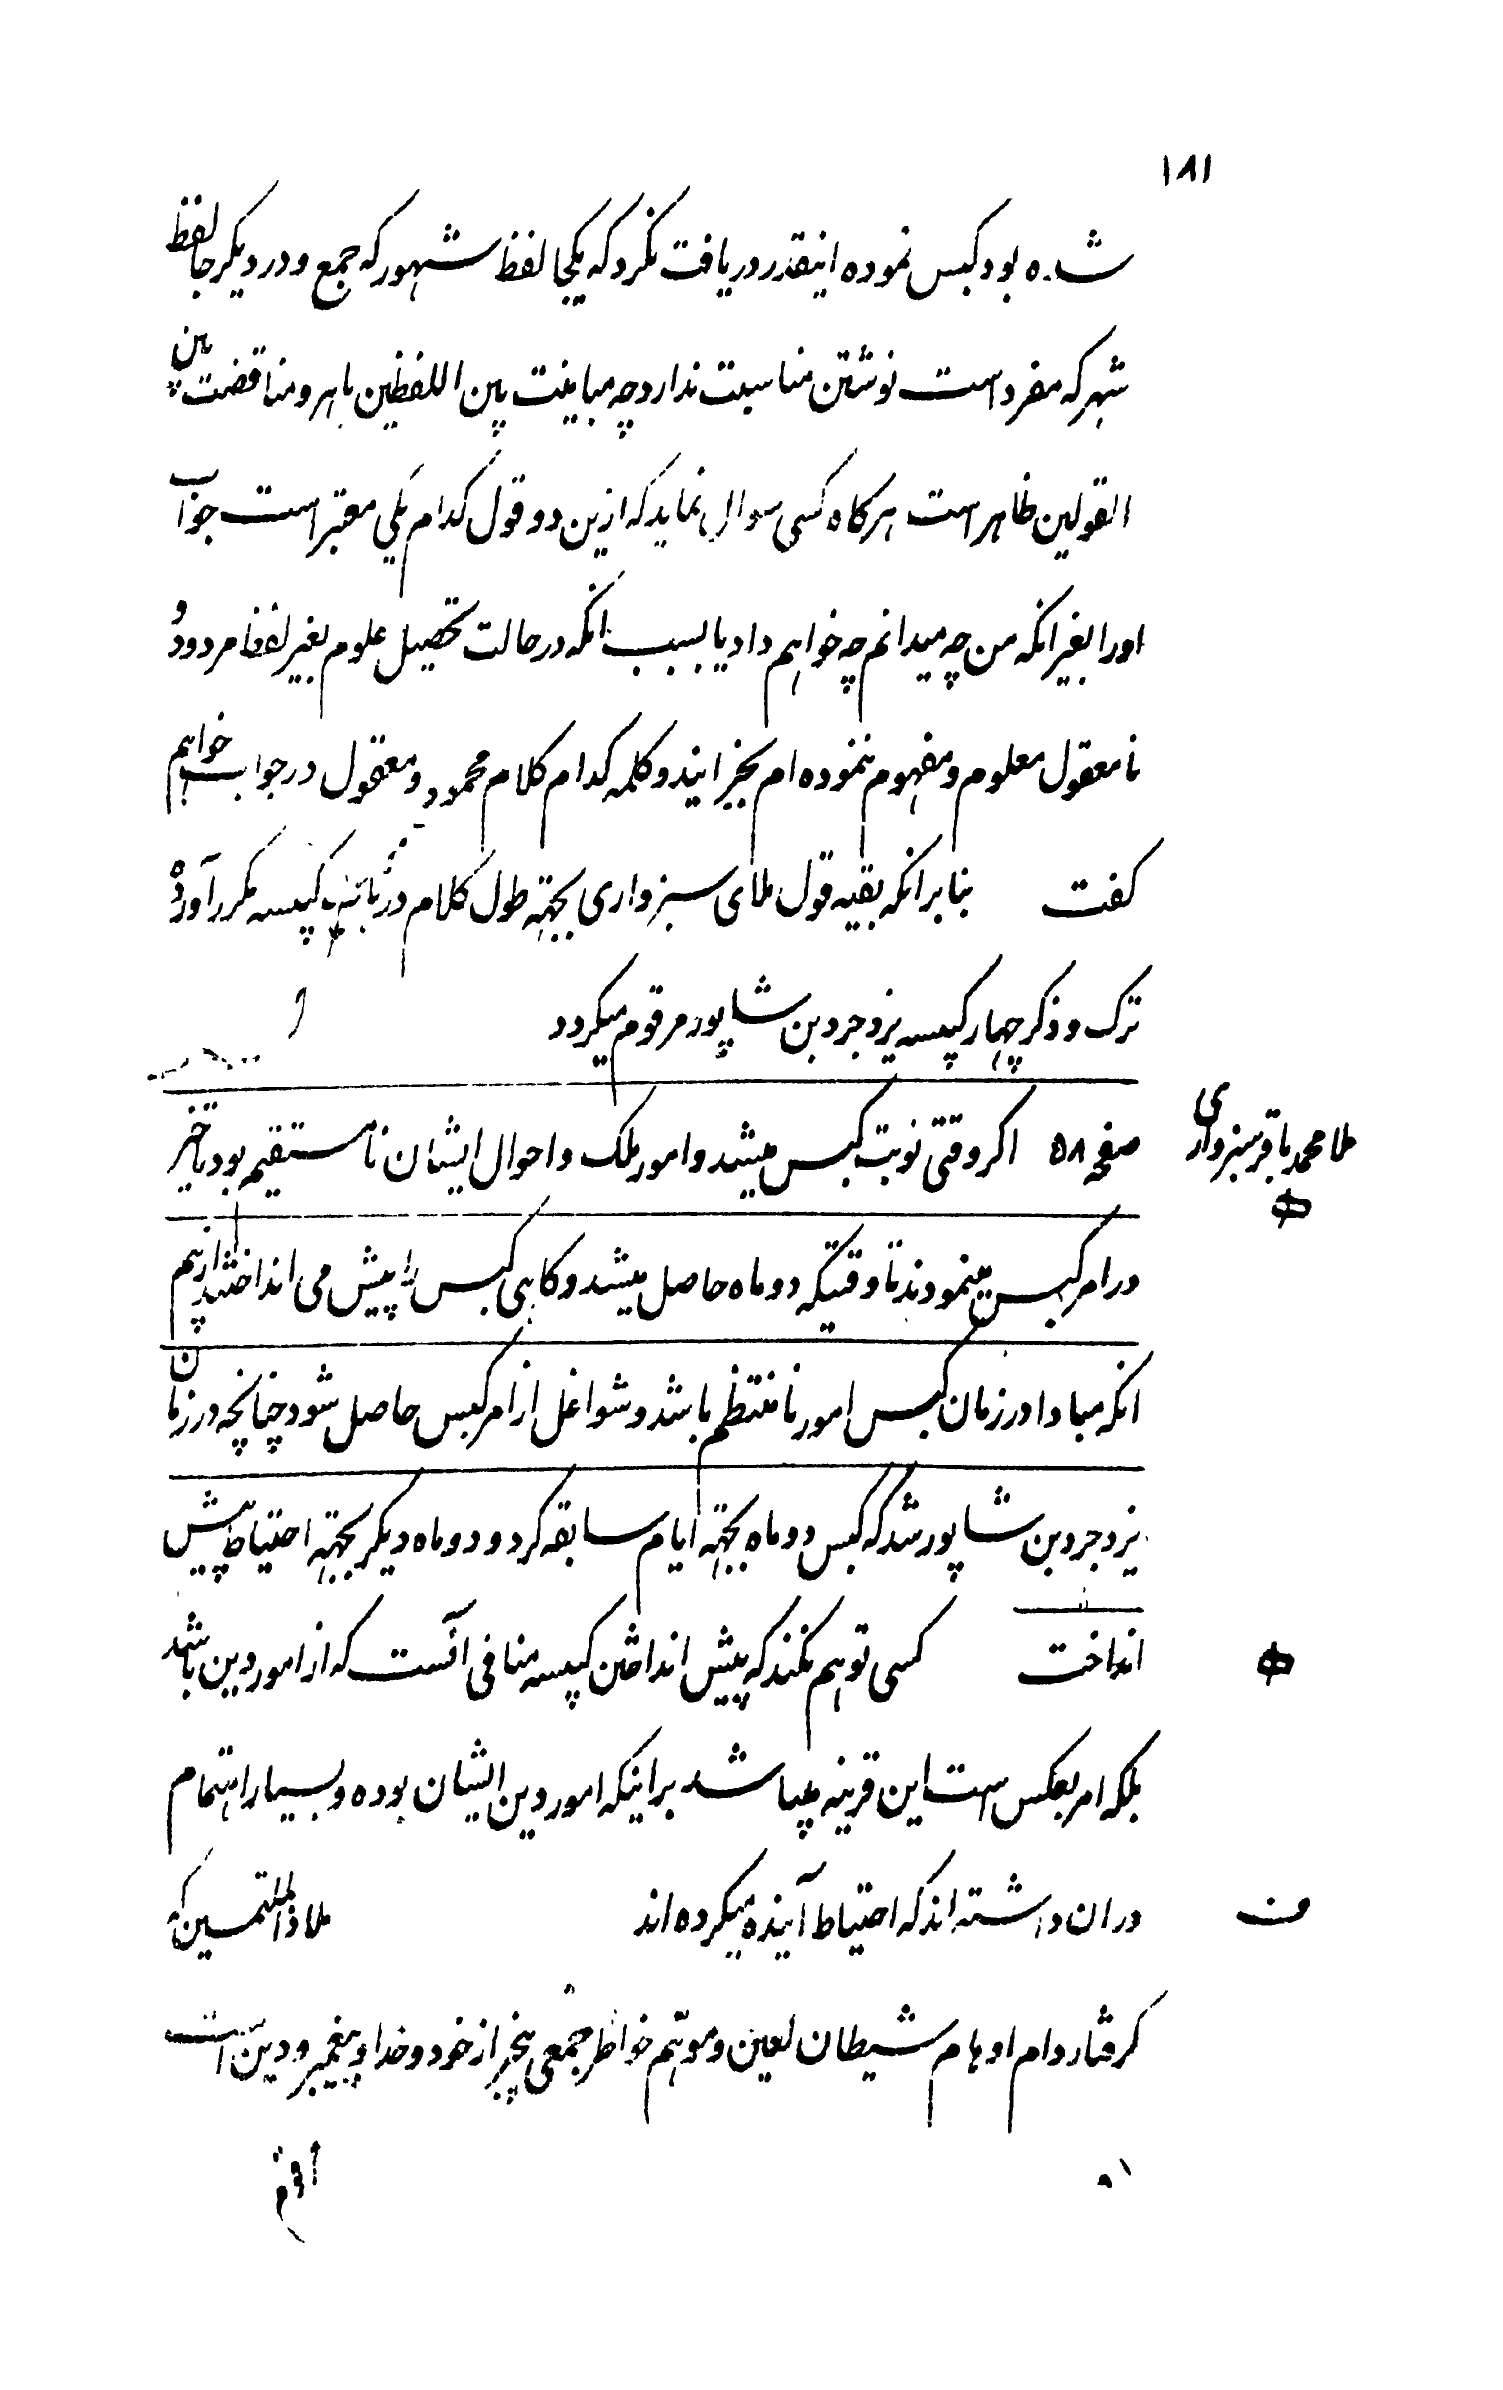 ۱۸۱
شده بود کبس نموده اینقدر دریافت نکرد که یکجا لفظ شهور که جمع و در دیگر جا لفظ
شهر که مفرد است نوشتن مناسبت ندارد چه مباینت بین اللفظین باهر و مناقضت بین
القولین ظاهر است هرکاه کسی سوال نماید که ازین دو قول کدام یکی معتبر است جواب
اورا بغیر انکه من چه میدانم چه خواهم داد یا بسبب انکه در حالت تحصیل علوم بغیر لفظ مردود و
نامعقول معلوم و مفهوم ننموده ام بجز ایندو کلمه کدام کلام محمود و معقول در جواب خواهم
کفت بنابر انکه بقیه قول ملای سبزواری بجهته طول کلام در کپیسه مکرر آورده
ترک و ذکر چهار کپیسه یزدجرد بن شاپور مرقوم میکردد
ملا محمد باقر سبزواری صفحه ۵۸ اکر وقتی نوبت کبس میشد و امور ملک و احوال ایشان نامستقیم بود تاخیر
در امر کبس مینمودند تا وقتیکه دو ماه حاصل میشد و کاهی کبس را پیش می انداختند از بیم
انکه مبادا در زمان کبس امور نامنتظم باشد و شواغل از امر کبس حاصل شود چنانچه در زمان
یزدجرد بن شاپور شد که کبس دو ماه بجهته ایام سابقه کرد و دو ماه دیکر بجهته احتیاط پیش
انداخت کسی توهم نکند که پیش انداختن کپیسه منافی آنست که از امور دین باشد
بلکه امر بعکس است این قرینه میباشد براینکه امور دین ایشان بوده و بسیار اهتمام
دران داشته اند که احتیاط آینده میکرده اند ملاذ الملتمسین که
کرفتار دام اوهام شیطان لعین و موهم خواطر جمعی بیخبر از خود و خدا و پیغمبر و دین است